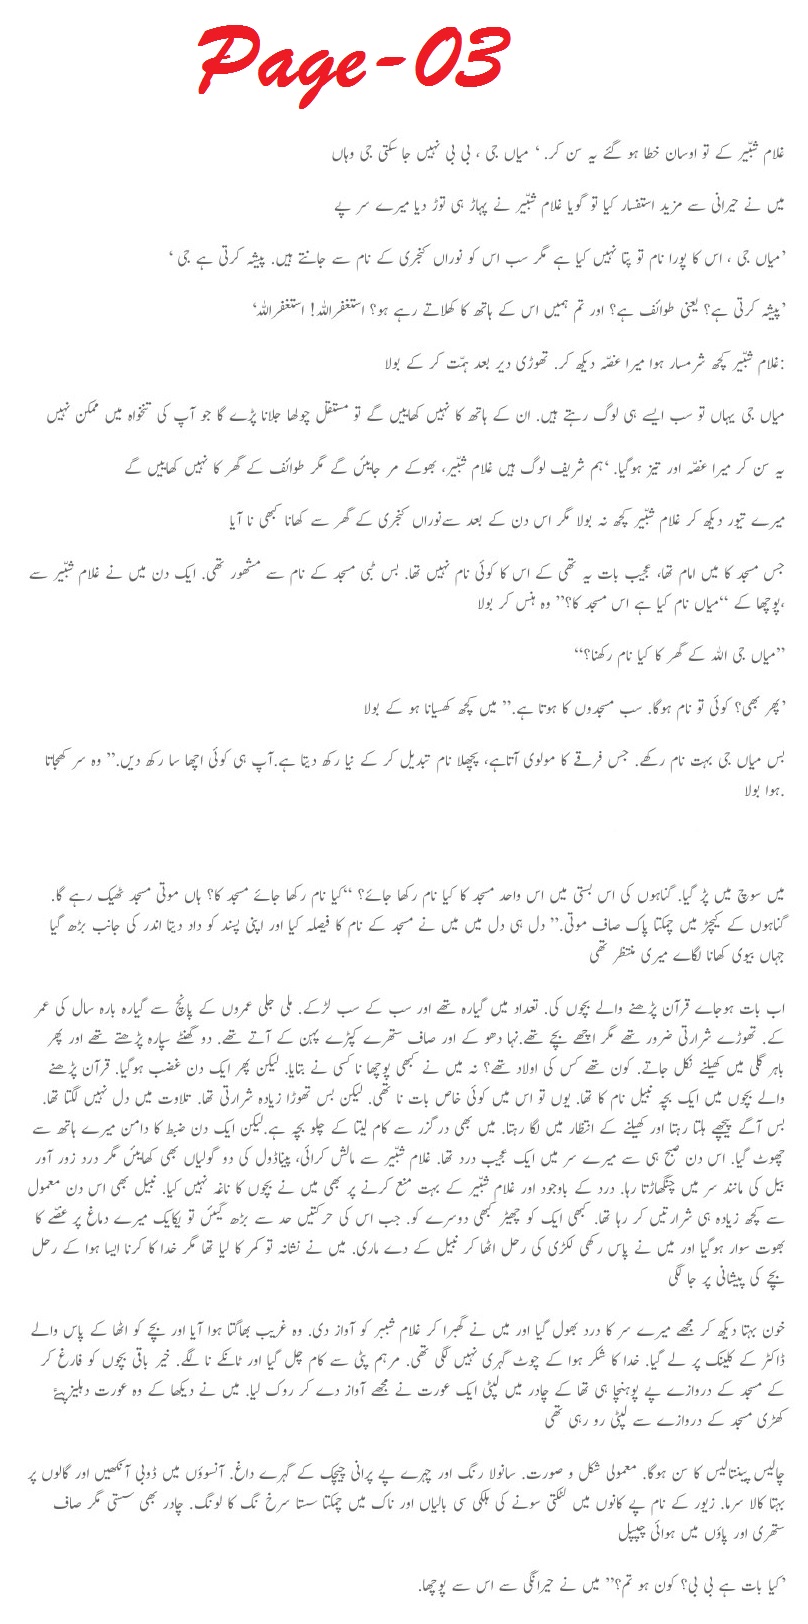 Page-03
غلام شبّیر کے تو اوسان خطا ہو گئے یہ سن کر. ‘ میاں جی ، بی بی نہیں جا سکتی جی وہاں
میں نے حیرانی سے مزید استفسار کیا تو گویا غلام شبّیر نے پہاڑ ہی توڑ دیا میرے سر پے
’میاں جی ، اس کا پورا نام تو پتا نہیں کیا ہے مگر سب اس کو نوراں کنجری کے نام سے جانتے ہیں. پیشہ کرتی ہے جی ‘
’پیشہ کرتی ہے؟ یعنی طوائف ہے؟ اور تم ہمیں اس کے ہاتھ کا کھلاتے رہے ہو؟ استغفراللہ! استغفراللہ‘
:غلام شبّیر کچھ شرمسار ہوا میرا غصّہ دیکھ کر. تھوڑی دیر بعد ہمّت کر کے بولا
میاں جی یہاں تو سب ایسے ہی لوگ رہتے ہیں. ان کے ہاتھ کا نہیں کھاییں گے تو مستقل چولھا جلانا پڑے گا جو آپ کی تنخواہ میں ممکن نہیں
یہ سن کر میرا غصّہ اور تیز ہوگیا. ‘ہم شریف لوگ ہیں غلام شبّیر، بھوکے مر جایئں گے مگر طوائف کے گھر کا نہیں کھاییں گے
میرے تیور دیکھ کر غلام شبّیر کچھ نہ بولا مگر اس دن کے بعد سےنوراں کنجری کے گھر سے کھانا کبھی نا آیا
جس مسجد کا میں امام تھا، عجیب بات یہ تھی کے اس کا کوئی نام نہیں تھا. بس ٹبی مسجد کے نام سے مشھور تھی. ایک دن میں نے غلام شبّیر سے
،پوچھا کے “میاں نام کیا ہے اس مسجد کا؟” وہ ہنس کر بولا
”میاں جی اللہ کے گھر کا کیا نام رکھنا؟“
’پھر بھی؟ کوئی تو نام ہوگا. سب مسجدوں کا ہوتا ہے.” میں کچھ کھسیانا ہو کے بولا
بس میاں جی بہت نام رکھے. جس فرقے کا مولوی آتاہے، پچھلا نام تبدیل کر کے نیا رکھ دیتا ہے.آپ ہی کوئی اچھا سا رکھ دیں.” وہ سر کھجاتا
.ہوا بولا
میں سوچ میں پڑ گیا. گناہوں کی اس بستی میں اس واحد مسجد کا کیا نام رکھا جائے؟ “کیا نام رکھا جائے مسجد کا؟ ہاں موتی مسجد ٹھیک رہے گا.
گناہوں کے کیچڑ میں چمکتا پاک صاف موتی.” دل ہی دل میں میں نے مسجد کے نام کا فیصلہ کیا اور اپنی پسند کو داد دیتا اندر کی جانب بڑھ گیا
جہاں بیوی کھانا لگاے میری منتظر تھی
اب بات ہوجاے قرآن پڑھنے والے بچوں کی. تعداد میں گیارہ تھے اور سب کے سب لڑکے. ملی جلی عمروں کے پانچ سے گیارہ بارہ سال کی عمر
کے. تھوڑے شرارتی ضرور تھے مگر اچھے بچے تھے.نہا دھو کے اور صاف ستھرے کپڑے پہن کے آتے تھے. دو گھنٹے سپارہ پڑھتے تھے اور پھر
باہر گلی میں کھیلنے نکل جاتے. کون تھے کس کی اولاد تھے؟ نہ میں نے کبھی پوچھا نا کسی نے بتایا. لیکن پھر ایک دن غضب ہوگیا. قرآن پڑھنے
والے بچوں میں ایک بچہ نبیل نام کا تھا. یوں تو اس میں کوئی خاص بات نا تھی. لیکن بس تھوڑا زیادہ شرارتی تھا. تلاوت میں دل نہیں لگتا تھا.
بس آگے پیچھے ہلتا رہتا اور کھیلنے کے انتظار میں لگا رہتا. میں بھی درگزر سے کام لیتا کے چلو بچہ ہے.لیکن ایک دن ضبط کا دامن میرے ہاتھ سے
چھوٹ گیا. اس دن صبح ہی سے میرے سر میں ایک عجیب درد تھا. غلام شبّیر سے مالش کرائی، پیناڈول کی دو گولیاں بھی کھایئں مگر درد زور آور
بیل کی مانند سر میں چنگھاڑتا رہا. درد کے باوجود اور غلام شبّیر کے بہت منع کرنے پر بھی میں نے بچوں کا ناغہ نہیں کیا. نبیل بھی اس دن معمول
سے کچھ زیادہ ہی شرارتیں کر رہا تھا. کبھی ایک کو چھیڑ کبھی دوسرے کو. جب اس کی حرکتیں حد سے بڑھ گیئں تو یکایک میرے دماغ پر غصّے کا
بھوت سوار ہوگیا اور میں نے پاس رکھی لکڑی کی رحل اٹھا کر نبیل کے دے ماری. میں نے نشانہ تو کمر کا لیا تھا مگر خدا کا کرنا ایسا ہوا کے رحل
بچے کی پیشانی پر جا لگی
خون بہتا دیکھ کر مجھے میرے سر کا درد بھول گیا اور میں نے گھبرا کر غلام شبیر کو آواز دی. وہ غریب بھاگتا ہوا آیا اور بچے کو اٹھا کے پاس والے
ڈاکٹر کے کلینک پر لے گیا. خدا کا شکر ہوا کے چوٹ گہری نہیں لگی تھی. مرہم پٹی سے کام چل گیا اور ٹانکے نا لگے. خیر باقی بچوں کو فارغ کر
کے مسجد کے دروازے پے پوہنچا ہی تھا کے چادر میں لپٹی ایک عورت نے مجھے آواز دے کر روک لیا. میں نے دیکھا کے وہ عورت دہلیزپئے
کھڑی مسجد کے دروازے سے لپٹی رو رہی تھی
چالیس پینتالیس کا سن ہوگا. معمولی شکل و صورت. سانولا رنگ اور چہرے پے پرانی چیچک کے گہرے داغ. آنسوؤں میں ڈوبی آنکھیں اور گالوں پر
بہتا کالا سرما. زیور کے نام پے کانوں میں لٹکتی سونے کی ہلکی سی بالیاں اور ناک میں چمکتا سستا سرخ نگ کا لونگ. چادر بھی سستی مگر صاف
ستھری اور پاؤں میں ہوائی چپپل
’کیا بات ہے بی بی؟ کون ہو تم؟” میں نے حیرانگی سے اس سے پوچھا.